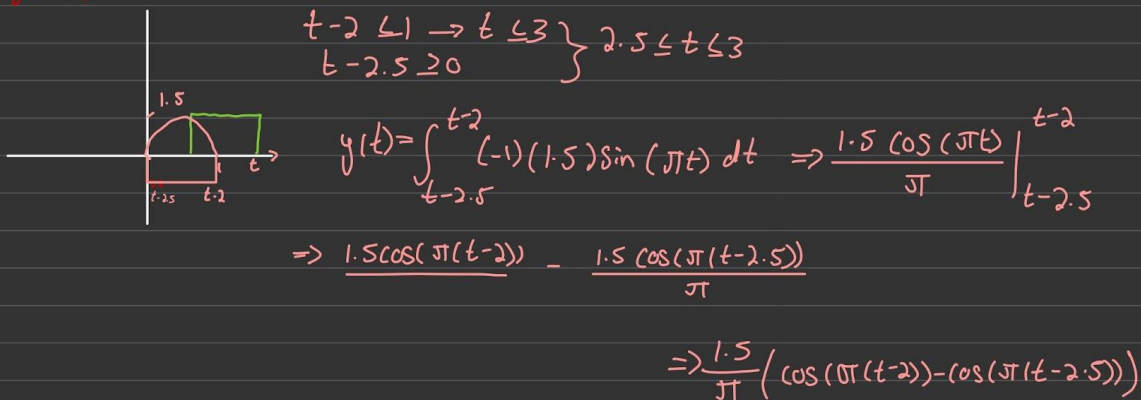 t-2 ≤1 → t ≤3 } 2.5 ≤ t ≤3
t-2.5 ≥0
1.5
t
1
t-2.5 t-2
y(t)= ∫_{t-2.5}^{t-2} (-1)(1.5)sin(πt) dt ⇒ 1.5 cos(πt)/π |_{t-2.5}^{t-2}
⇒ 1.5cos(π(t-2))/ - 1.5 cos(π(t-2.5))/π
⇒ 1.5/π (cos(π(t-2))-cos(π(t-2.5)))